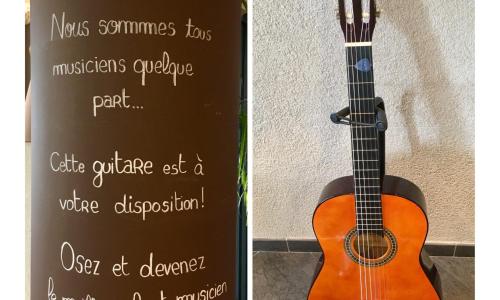 Nous sommmes tous
musiciens quelque
part...
Cette guitare est à
votre disposition!
Osez et devenez
le musicien